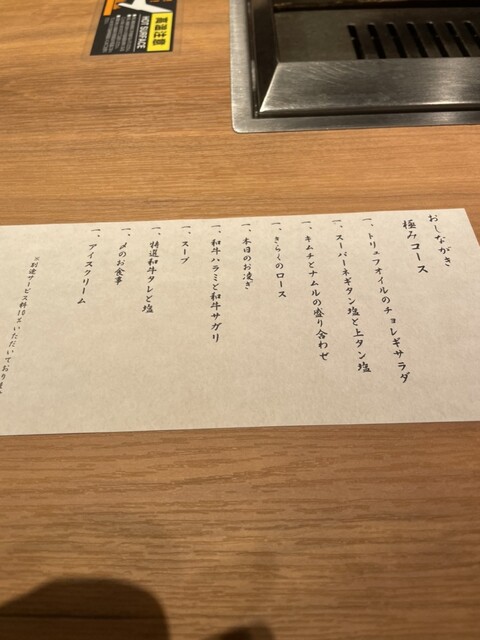 おしながき
極みコース
一、トリュフオイルのチョレギサラダ
一、スーパーネギタン塩と上タン塩
一、キムチとナムルの盛り合わせ
一、きらくのロース
一、本日のお凌ぎ
一、和牛ハラミと和牛サガリ
一、スープ
一、特選和牛タレと塩
一、〆のお食事
一、アイスクリーム
※別途サービス料10%いただいております
高温注意
HOT SURFACE